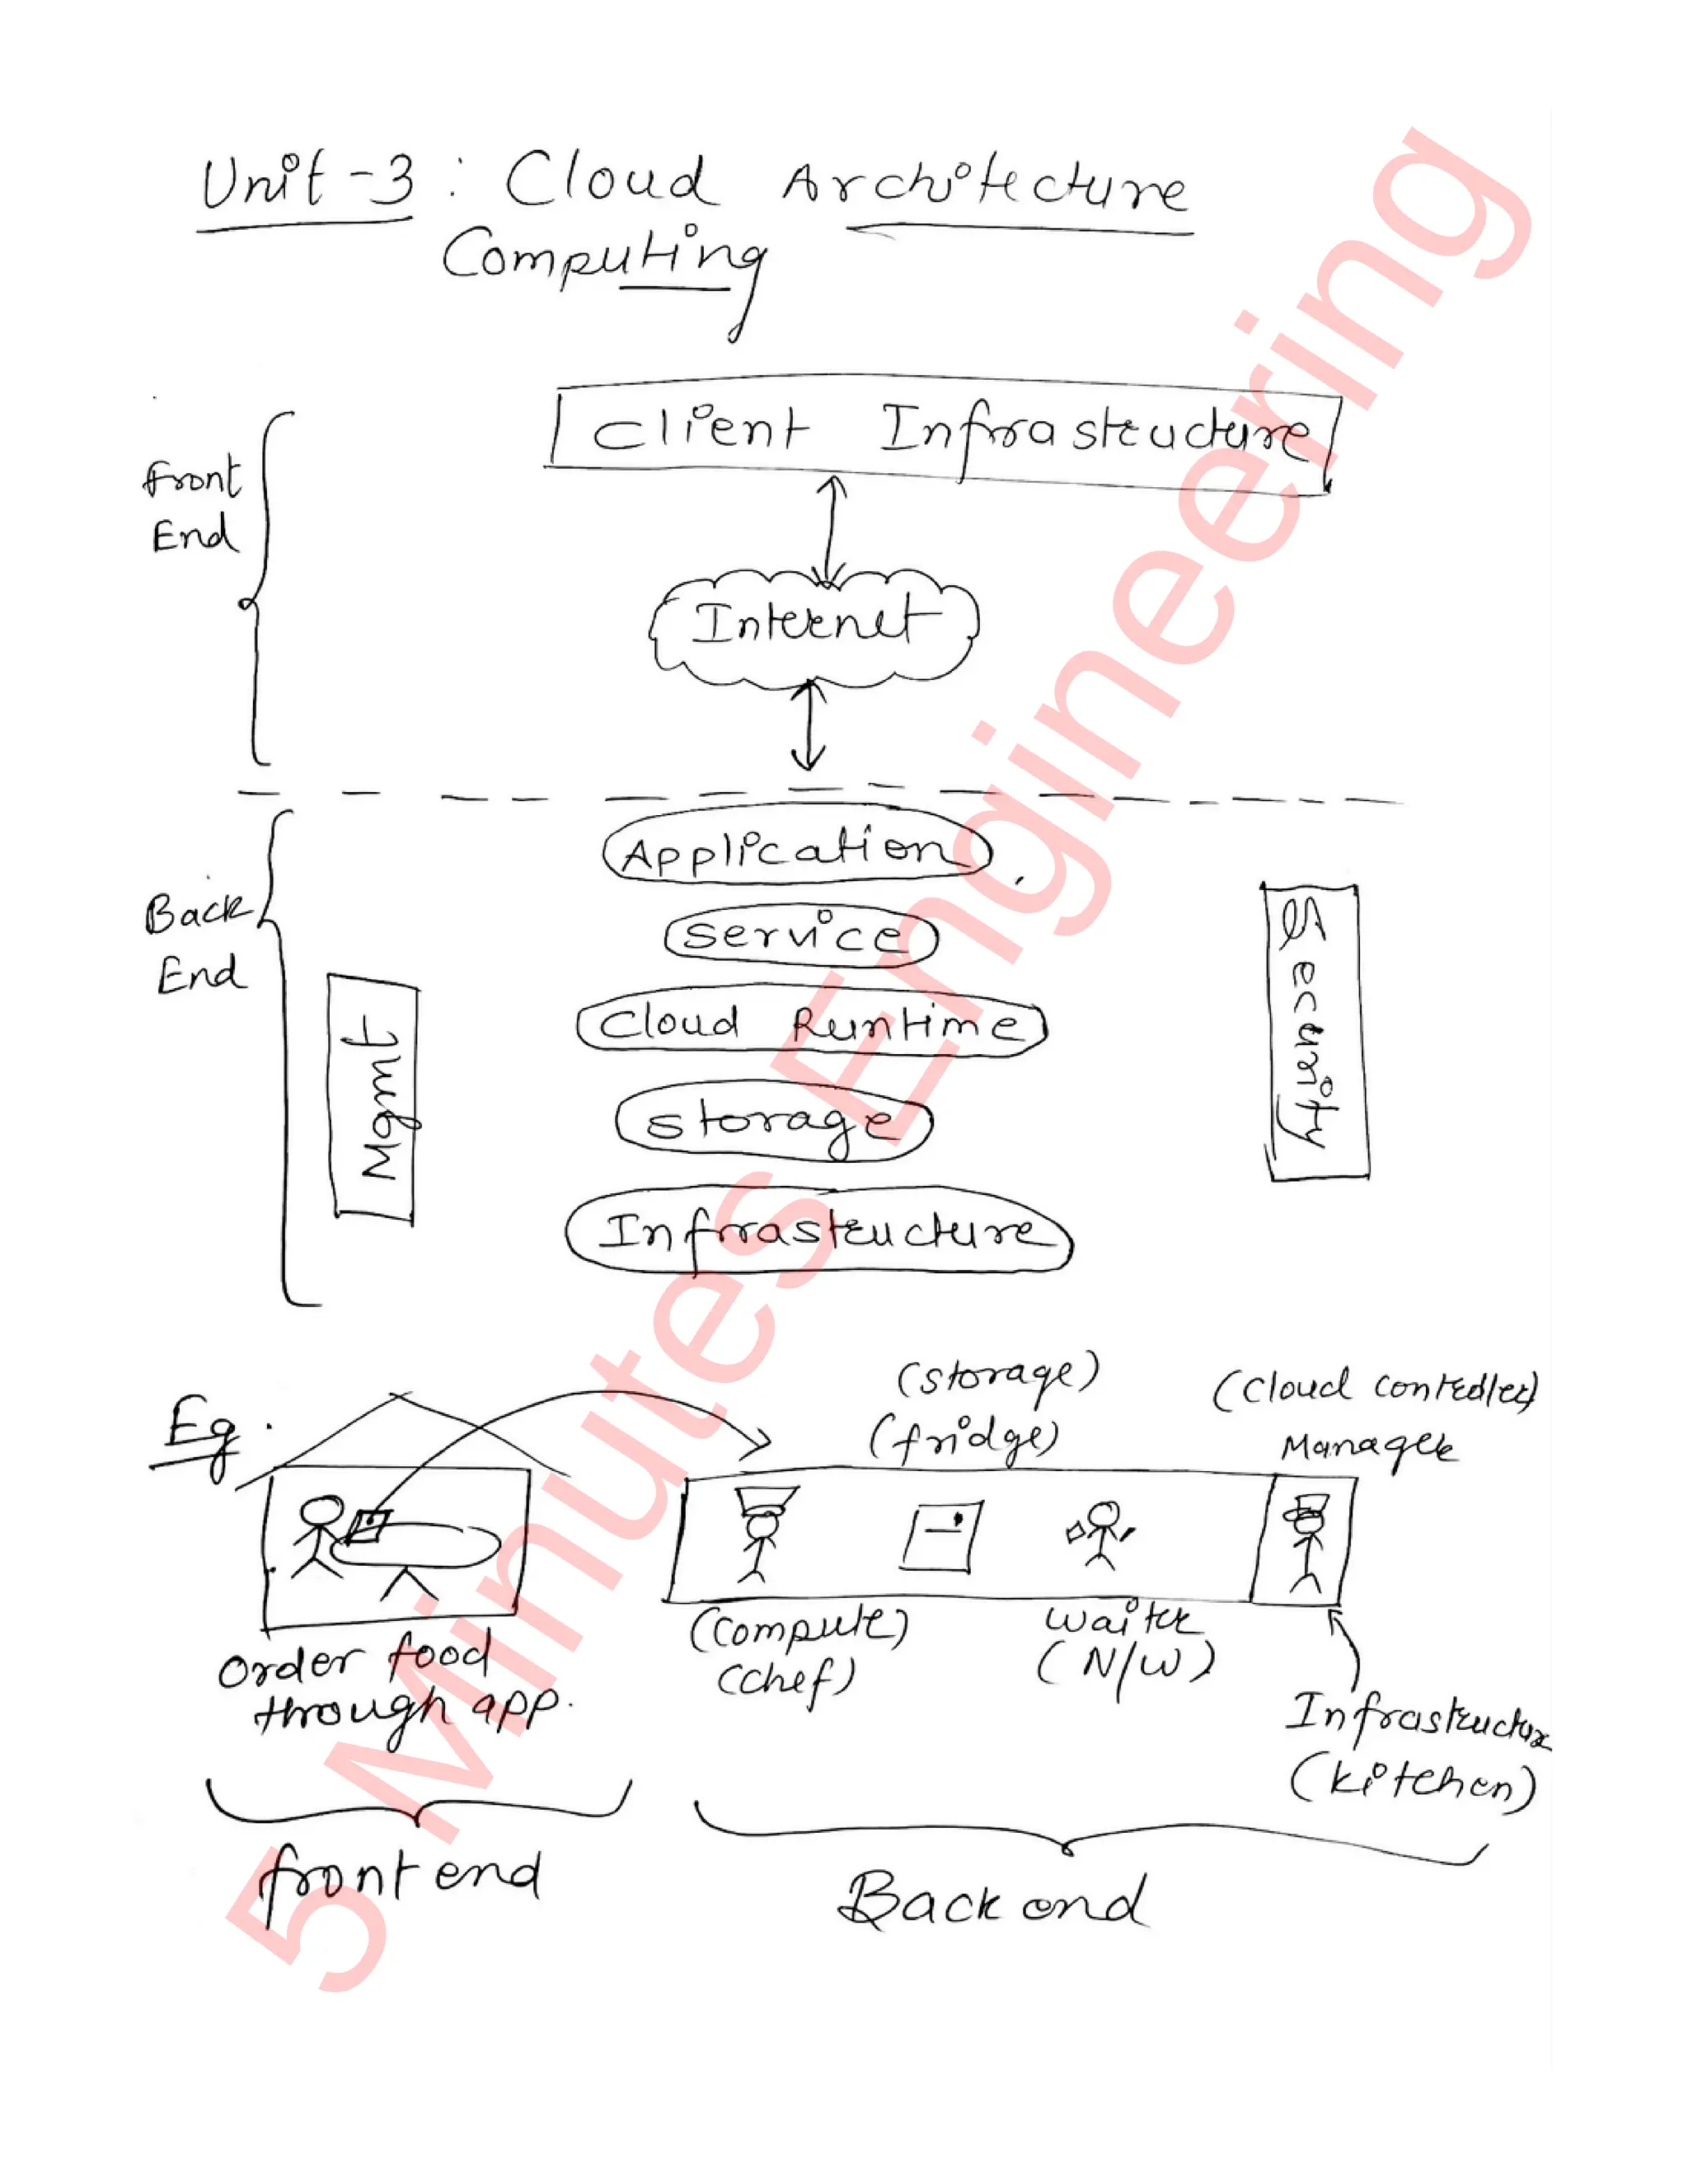 Unit-3 : Cloud Architecture
Computing
Client Infrastructure
Front
End
Internet
Application
Back
End
Service
Cloud Runtime
Storage
Infrastructure
Mgmt
Security
Eg.
(storage)
(fridge)
(Cloud controller)
Manager
Order food
through app.
(Compute)
(chef)
waiter
(N/W)
Infrastructure
(kitchen)
front end
Back end
5 Minutes Engineering